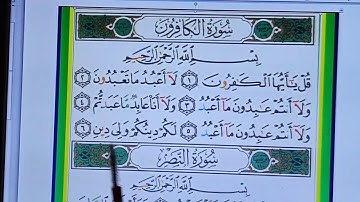 سُورَةُ الْكَافِرُونَ
بِسْمِ اللَّهِ الرَّحْمَٰنِ الرَّحِيمِ
قُلْ يَا أَيُّهَا الْكَافِرُونَ ١ لَا أَعْبُدُ مَا تَعْبُدُونَ ٢
وَلَا أَنْتُمْ عَابِدُونَ مَا أَعْبُدُ ٣ وَلَا أَنَا عَابِدٌ مَا عَبَدْتُمْ ٤
وَلَا أَنْتُمْ عَابِدُونَ مَا أَعْبُدُ ٥ لَكُمْ دِينُكُمْ وَلِيَ دِينِ ٦
سُورَةُ النَّصْرِ
بِسْمِ اللَّهِ الرَّحْمَٰنِ الرَّحِيمِ